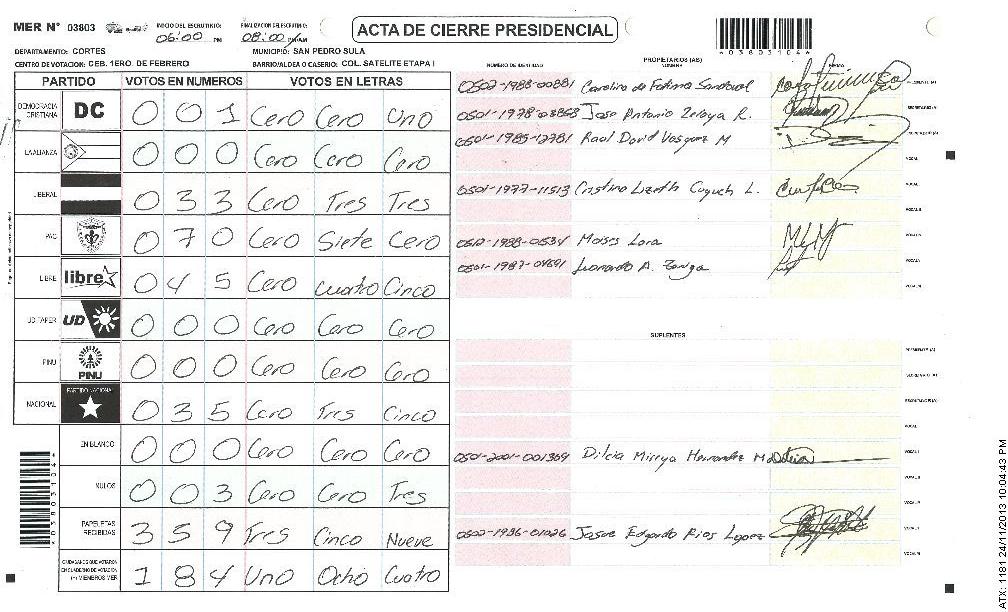 MER N° 03803 INICIO DEL ESCRUTINIO: 06:00 PM FINALIZACION DEL ESCRUTINIO: 08:00 PM/AM
ACTA DE CIERRE PRESIDENCIAL
*0380310 4*
DEPARTAMENTO: CORTES MUNICIPIO: SAN PEDRO SULA
CENTRO DE VOTACION: CEB. 1ERO. DE FEBRERO BARRIO/ALDEA O CASERIO: COL. SATELITE ETAPA I
PARTIDO VOTOS EN NUMEROS VOTOS EN LETRAS
DEMOCRACIA CRISTIANA DC 0 0 1 Cero Cero Uno
LA ALIANZA 0 0 0 Cero Cero Cero
LIBERAL 0 3 3 Cero Tres Tres
PAC 0 7 0 Cero Siete Cero
LIBRE libre 0 4 5 Cero Cuatro Cinco
UD FAPER UD 0 0 0 Cero Cero Cero
PINU PINU 0 0 0 Cero Cero Cero
NACIONAL PARTIDO NACIONAL 0 3 5 Cero Tres Cinco
EN BLANCO 0 0 0 Cero Cero Cero
NULOS 0 0 3 Cero Cero Tres
PAPELETAS RECIBIDAS 3 5 9 Tres Cinco Nueve
CIUDADANOS QUE VOTARON EN CUADERNO DE VOTACION (+) MIEMBROS MER 1 8 4 Uno Ocho Cuatro
PROPIETARIOS (AS)
NUMERO DE IDENTIDAD NOMBRE FIRMA
0502-1988-00881 Carolina de Fatima Sandoval PRESIDENTE (A)
Jose Antonio Zelaya R. SECRETARIO (A)
0501-1985-12781 Raul David Vasquez M ESCRUTADOR (A)
VOCAL I
0501-1977-11513 Cristina Lizeth L. VOCAL II
Moises Lara
Leonardo A. Zuniga
SUPLENTES
PRESIDENTE (A)
SECRETARIO (A)
ESCRUTADOR (A)
VOCAL I
0501-2001-001369 Dilcia Mirrya Hernandez M
0502-1986-01026 Josue Edgardo Rios Lopez
ATX: 1181 24/11/2013 10:04:43 PM